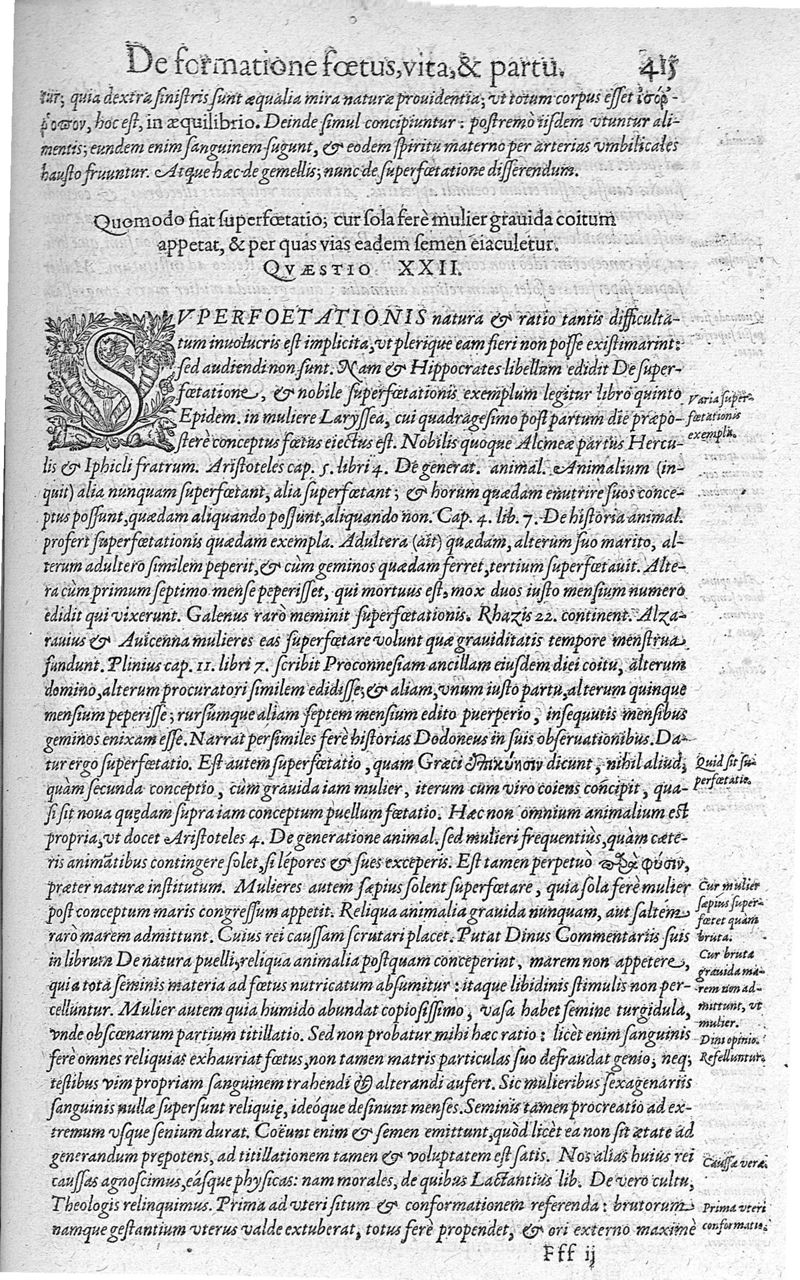 De formatione fœtus, vita, & partu. 415
tur; quia dextra sinistris sunt æqualia mira naturæ prouidentia; vt totum corpus esset ἰσόρ-
ῥοπον, hoc est, in æquilibrio. Deinde simul concipiuntur: postremò iisdem vtuntur ali-
mentis; eundem enim sanguinem sugunt, & eodem spiritu materno per arterias vmbilicales
hausto fruuntur. Atque hæc de gemellis; nunc de superfœtatione disserendum.
Quomodo fiat superfœtatio; cur sola ferè mulier grauida coitum
appetat, & per quas vias eadem semen eiaculetur.
QVÆSTIO XXII.
SVPERFOETATIONIS natura & ratio tantis difficulta-
tum inuolucris est implicita, vt plerique eam fieri non posse existimarint:
sed audiendi non sunt. Nam & Hippocrates libellum edidit De super-
fœtatione, & nobile superfœtationis exemplum legitur libro quinto
Varia super-
Epidem. in muliere Laryssea, cui quadragesimo post partum die præpo-
fœtationis
sterè conceptus fœtus eiectus est. Nobilis quoque Alcmeæ partus Hercu-
exempla.
lis & Iphicli fratrum. Aristoteles cap. 5. libri 4. De generat. animal. Animalium (in-
quit) alia nunquam superfœtant, alia superfœtant; & horum quædam enutrire suos conce-
ptus possunt, quædam aliquando possunt, aliquando non. Cap. 4. lib. 7. De historia animal.
profert superfœtationis quædam exempla. Adultera (ait) quædam, alterum suo marito, al-
terum adultero similem peperit, & cùm geminos quædam ferret, tertium superfœtauit. Alte-
ra cùm primum septimo mense peperisset, qui mortuus est, mox duos iusto mensium numero
edidit qui vixerunt. Galenus rarò meminit superfœtationis. Rhazis 22. continent. Alza-
rauius & Auicenna mulieres eas superfœtare volunt quæ grauiditatis tempore menstrua
fundunt. Plinius cap. 11. libri 7. scribit Proconnesiam ancillam eiusdem diei coitu, alterum
domino, alterum procuratori similem edidisse; & aliam, vnum iusto partu, alterum quinque
mensium peperisse; rursúmque aliam septem mensium edito puerperio, insequutis mensibus
geminos enixam esse. Narrat persimiles ferè historias Dodoneus in suis obseruationibus. Da-
tur ergo superfœtatio. Est autem superfœtatio, quam Græci ἐπικύησιν dicunt, nihil aliud,
Quid sit su-
quàm secunda conceptio, cùm grauida iam mulier, iterum cùm viro coiens concipit, qua-
perfœtatio.
si sit noua quędam supra iam conceptum puellum fœtatio. Hæc non omnium animalium est
propria, vt docet Aristoteles 4. De generatione animal. sed mulieri frequentiùs, quàm cæte-
ris animātibus contingere solet, si lépores & sues exceperis. Est tamen perpetuò παρὰ φύσιν,
præter naturæ institutum. Mulieres autem sæpius solent superfœtare, quia sola ferè mulier
Cur mulier
post conceptum maris congressum appetit. Reliqua animalia grauida nunquam, aut saltem
sæpius super-
fœtet quàm
rarò marem admittunt. Cuius rei caussam scrutari placet. Putat Dinus Commentariis suis
bruta.
in librum De natura puelli, reliqua animalia postquam conceperint, marem non appetere,
Cur bruta
grauida ma-
quia tota seminis materia ad fœtus nutricatum absumitur: itaque libidinis stimulis non per-
rem non ad-
celluntur. Mulier autem quia humido abundat copiosissimo, vasa habet semine turgidula,
mittunt, vt
mulier.
vnde obscœnarum partium titillatio. Sed non probatur mihi hæc ratio: licèt enim sanguinis
Dini opinio.
ferè omnes reliquias exhauriat fœtus, non tamen matris particulas suo defraudat genio; neq;
Refelluntur.
testibus vim propriam sanguinem trahendi & alterandi aufert. Sic mulieribus sexagenariis
sanguinis nullæ supersunt reliquię, ideóque desinunt menses. Seminis tamen procreatio ad ex-
tremum vsque senium durat. Coëunt enim & semen emittunt, quòd licèt ea non sit ætate ad
generandum prepotens, ad titillationem tamen & voluptatem est satis. Nos alias huius rei
Caussa vera.
caussas agnoscimus, eásque physicas: nam morales, de quibus Lactantius lib. De vero cultu,
Theologis relinquimus. Prima ad vteri situm & conformationem referenda: brutorum
Prima vteri
namque gestantium vterus valde extuberat, totus ferè propendet, & ori externo maximè
conformatio.
Fff ij